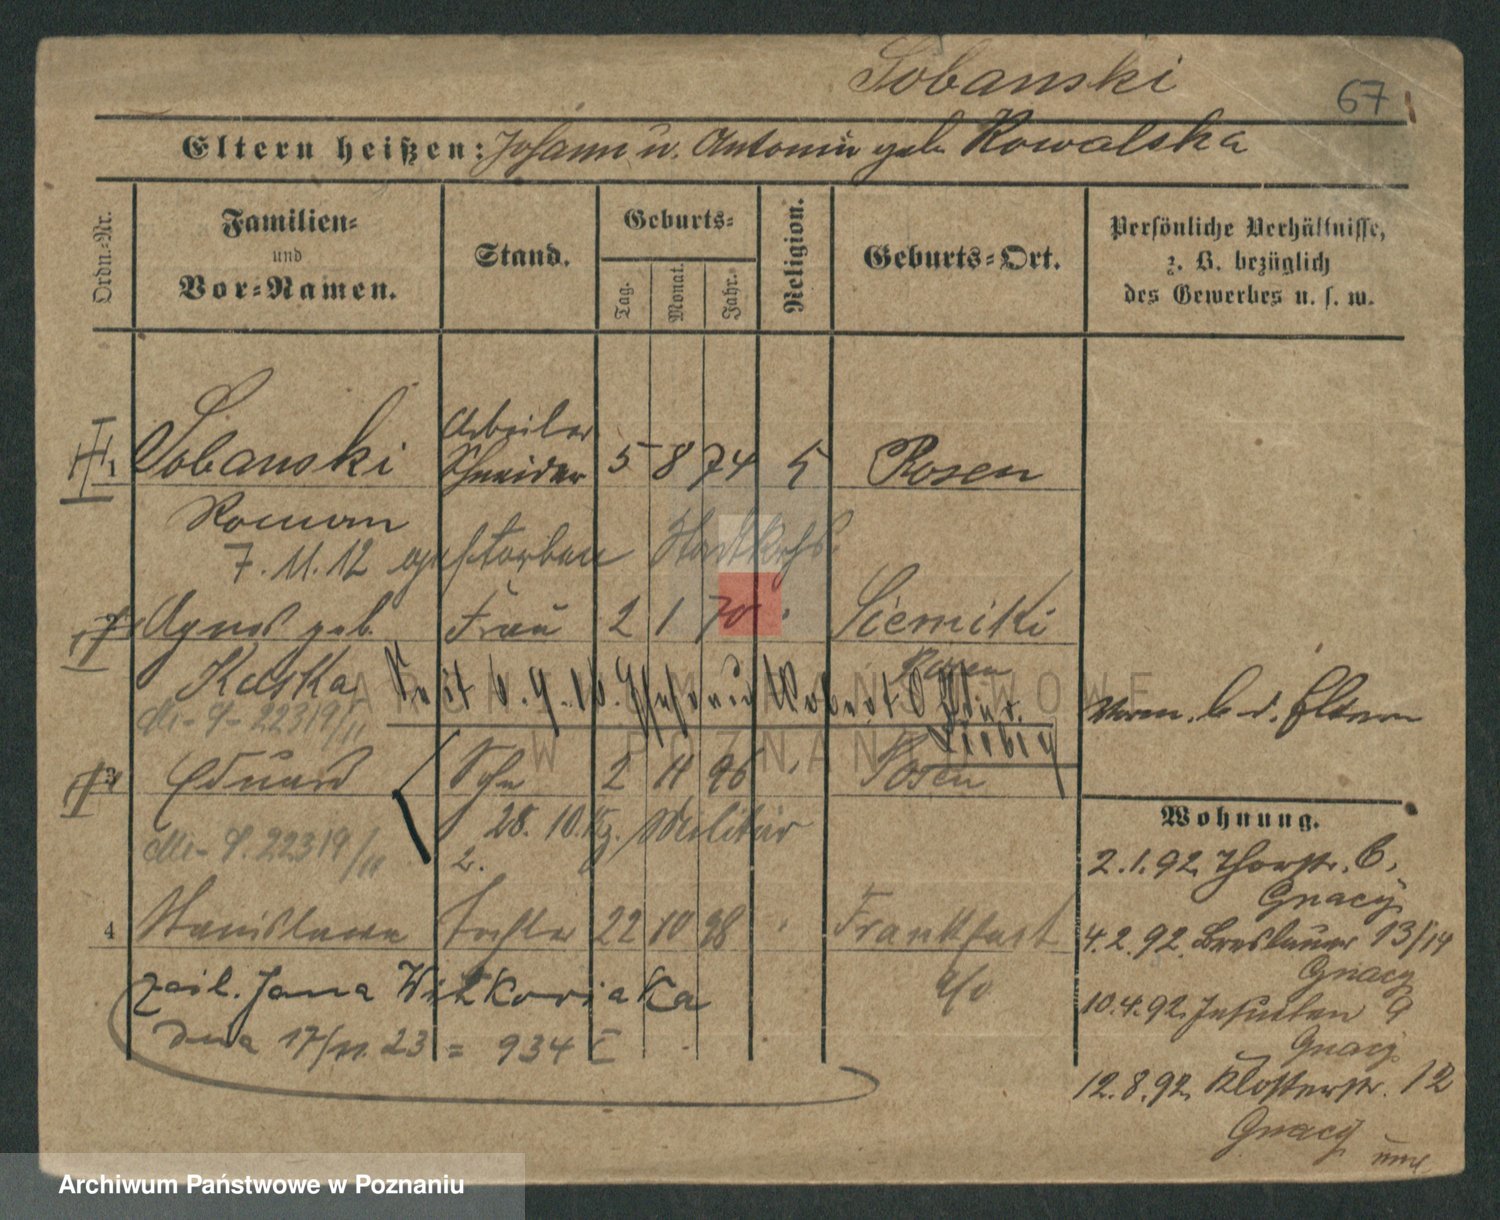 Sobanski
67
Eltern heißen: Johann u. Antonia geb. Kowalska
Ordn.-Nr.
Familien-
und
Vor-Namen.
Stand.
Geburts-
Tag.
Monat.
Jahr.
Religion.
Geburts-Ort.
Persönliche Verhältnisse,
z. B. bezüglich
des Gewerbes u. s. w.
1 Sobanski Arbeiter
Schneider 5 8 74 Posen
Roman
7.11.12 gestorben Stadtkrhs.
Agnes geb. Frau 2 1 70 Siemiki
Kaska Posen
22319/11
verm. b. d. Eltern
3 Eduard Sohn 2 11 96 Posen
28. 10. Militär
22319/11
4 Stanislawa Tochter 22 10 98 Frankfurt
a/o
zaśl. Jana Witkowiaka
dnia 17/11.23 = 934 I
Wohnung.
2.1.92. Thorstr. 6.
Gnacy
4.2.92. Breslauer 13/14
Gnacy
10.4.92. Jesuiten 9
Gnacy
12.8.92. Klosterstr. 12
Gnacy
ARCHIWUM PAŃSTWOWE
W POZNANIU
Archiwum Państwowe w Poznaniu